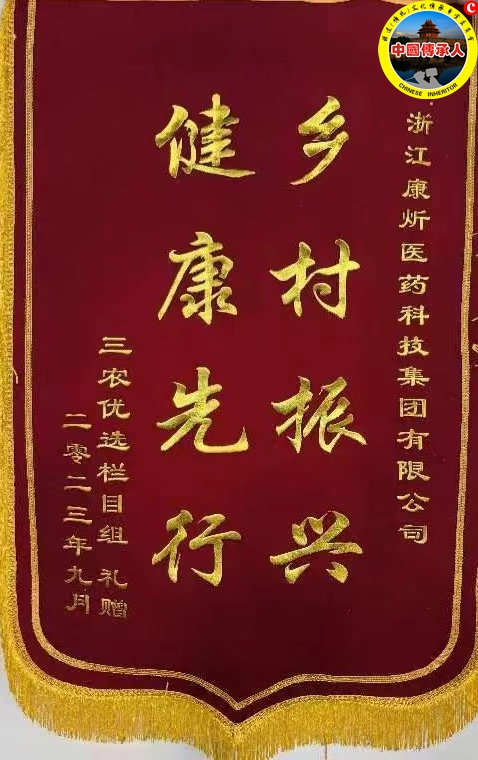 浙江康炘医药科技集团有限公司
乡村振兴
健康先行
三农优选栏目组 礼赠
二零二三年九月
中國傳承人
CHINESE INHERITOR
C